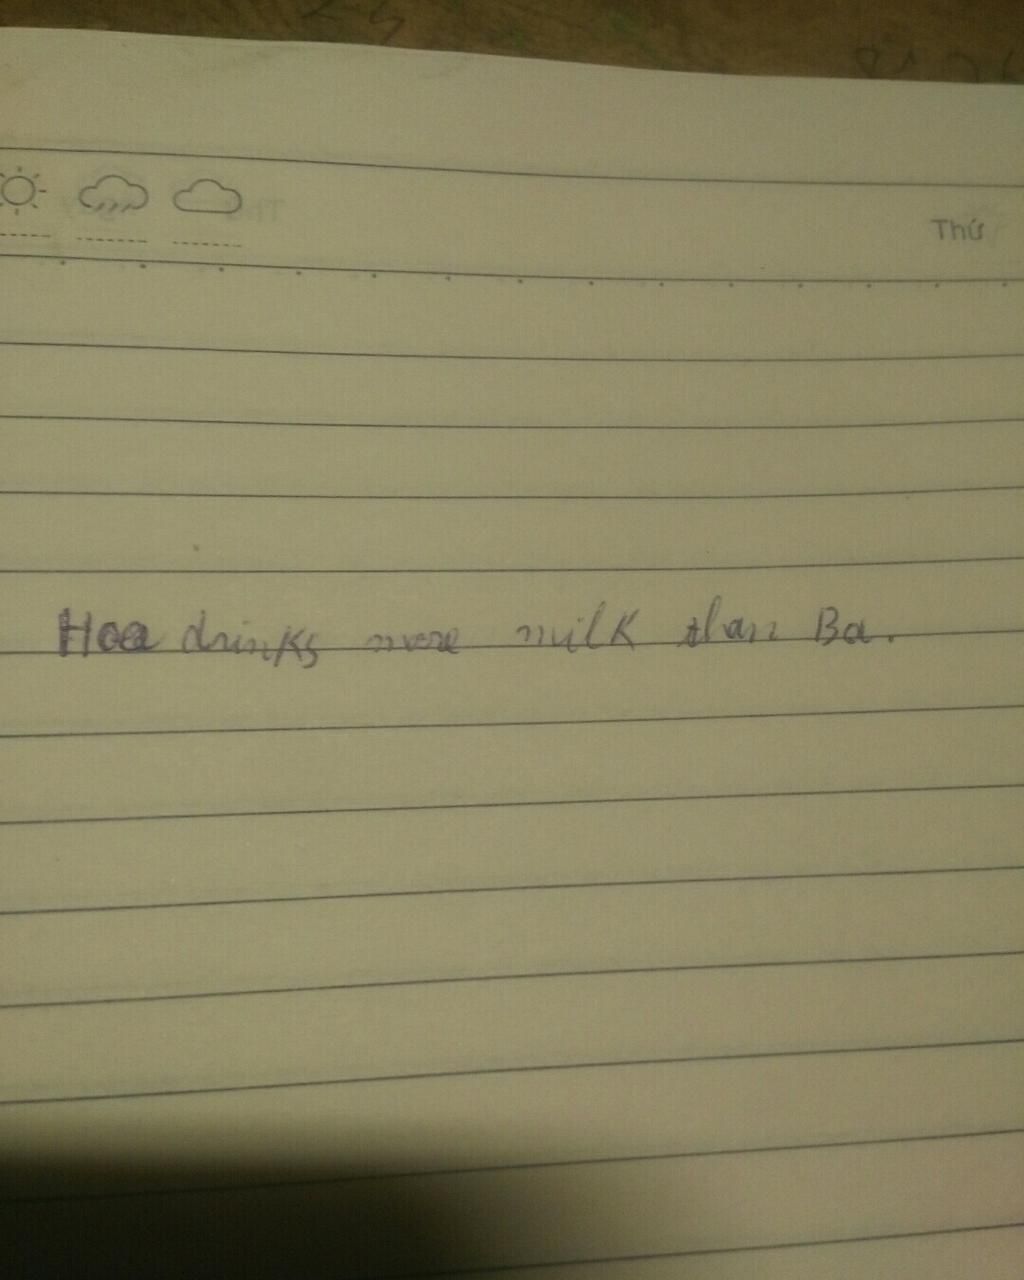 Thứ
Hoa drinks more milk than Ba.